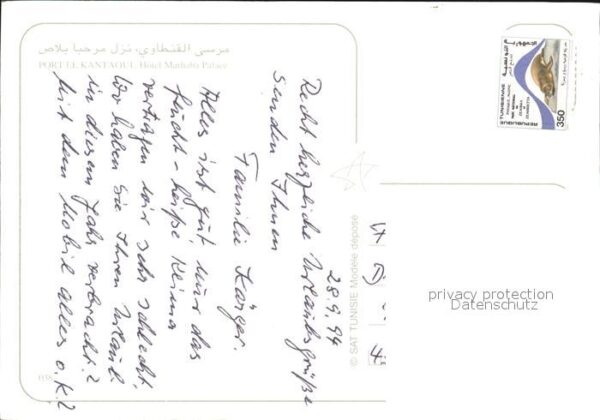 مرسى القنطاوي، نزل مرحبا بلاص
PORT EL KANTAOUI, Hotel Marhaba Palace
28.9.94
Recht herzliche Urlaubsgrüße
senden Ihnen
Familie Karger.
Alles ist gut, nur das
feucht-heiße Klima
vertragen wir sehr schlecht.
Wo haben Sie Ihren Urlaub
in diesem Jahr verbracht?
Mit dem Mobil alles o.k.?
© SAT TUNISIE Modèle déposé
REPUBLIQUE
TUNISIENNE
350
privacy protection
Datenschutz